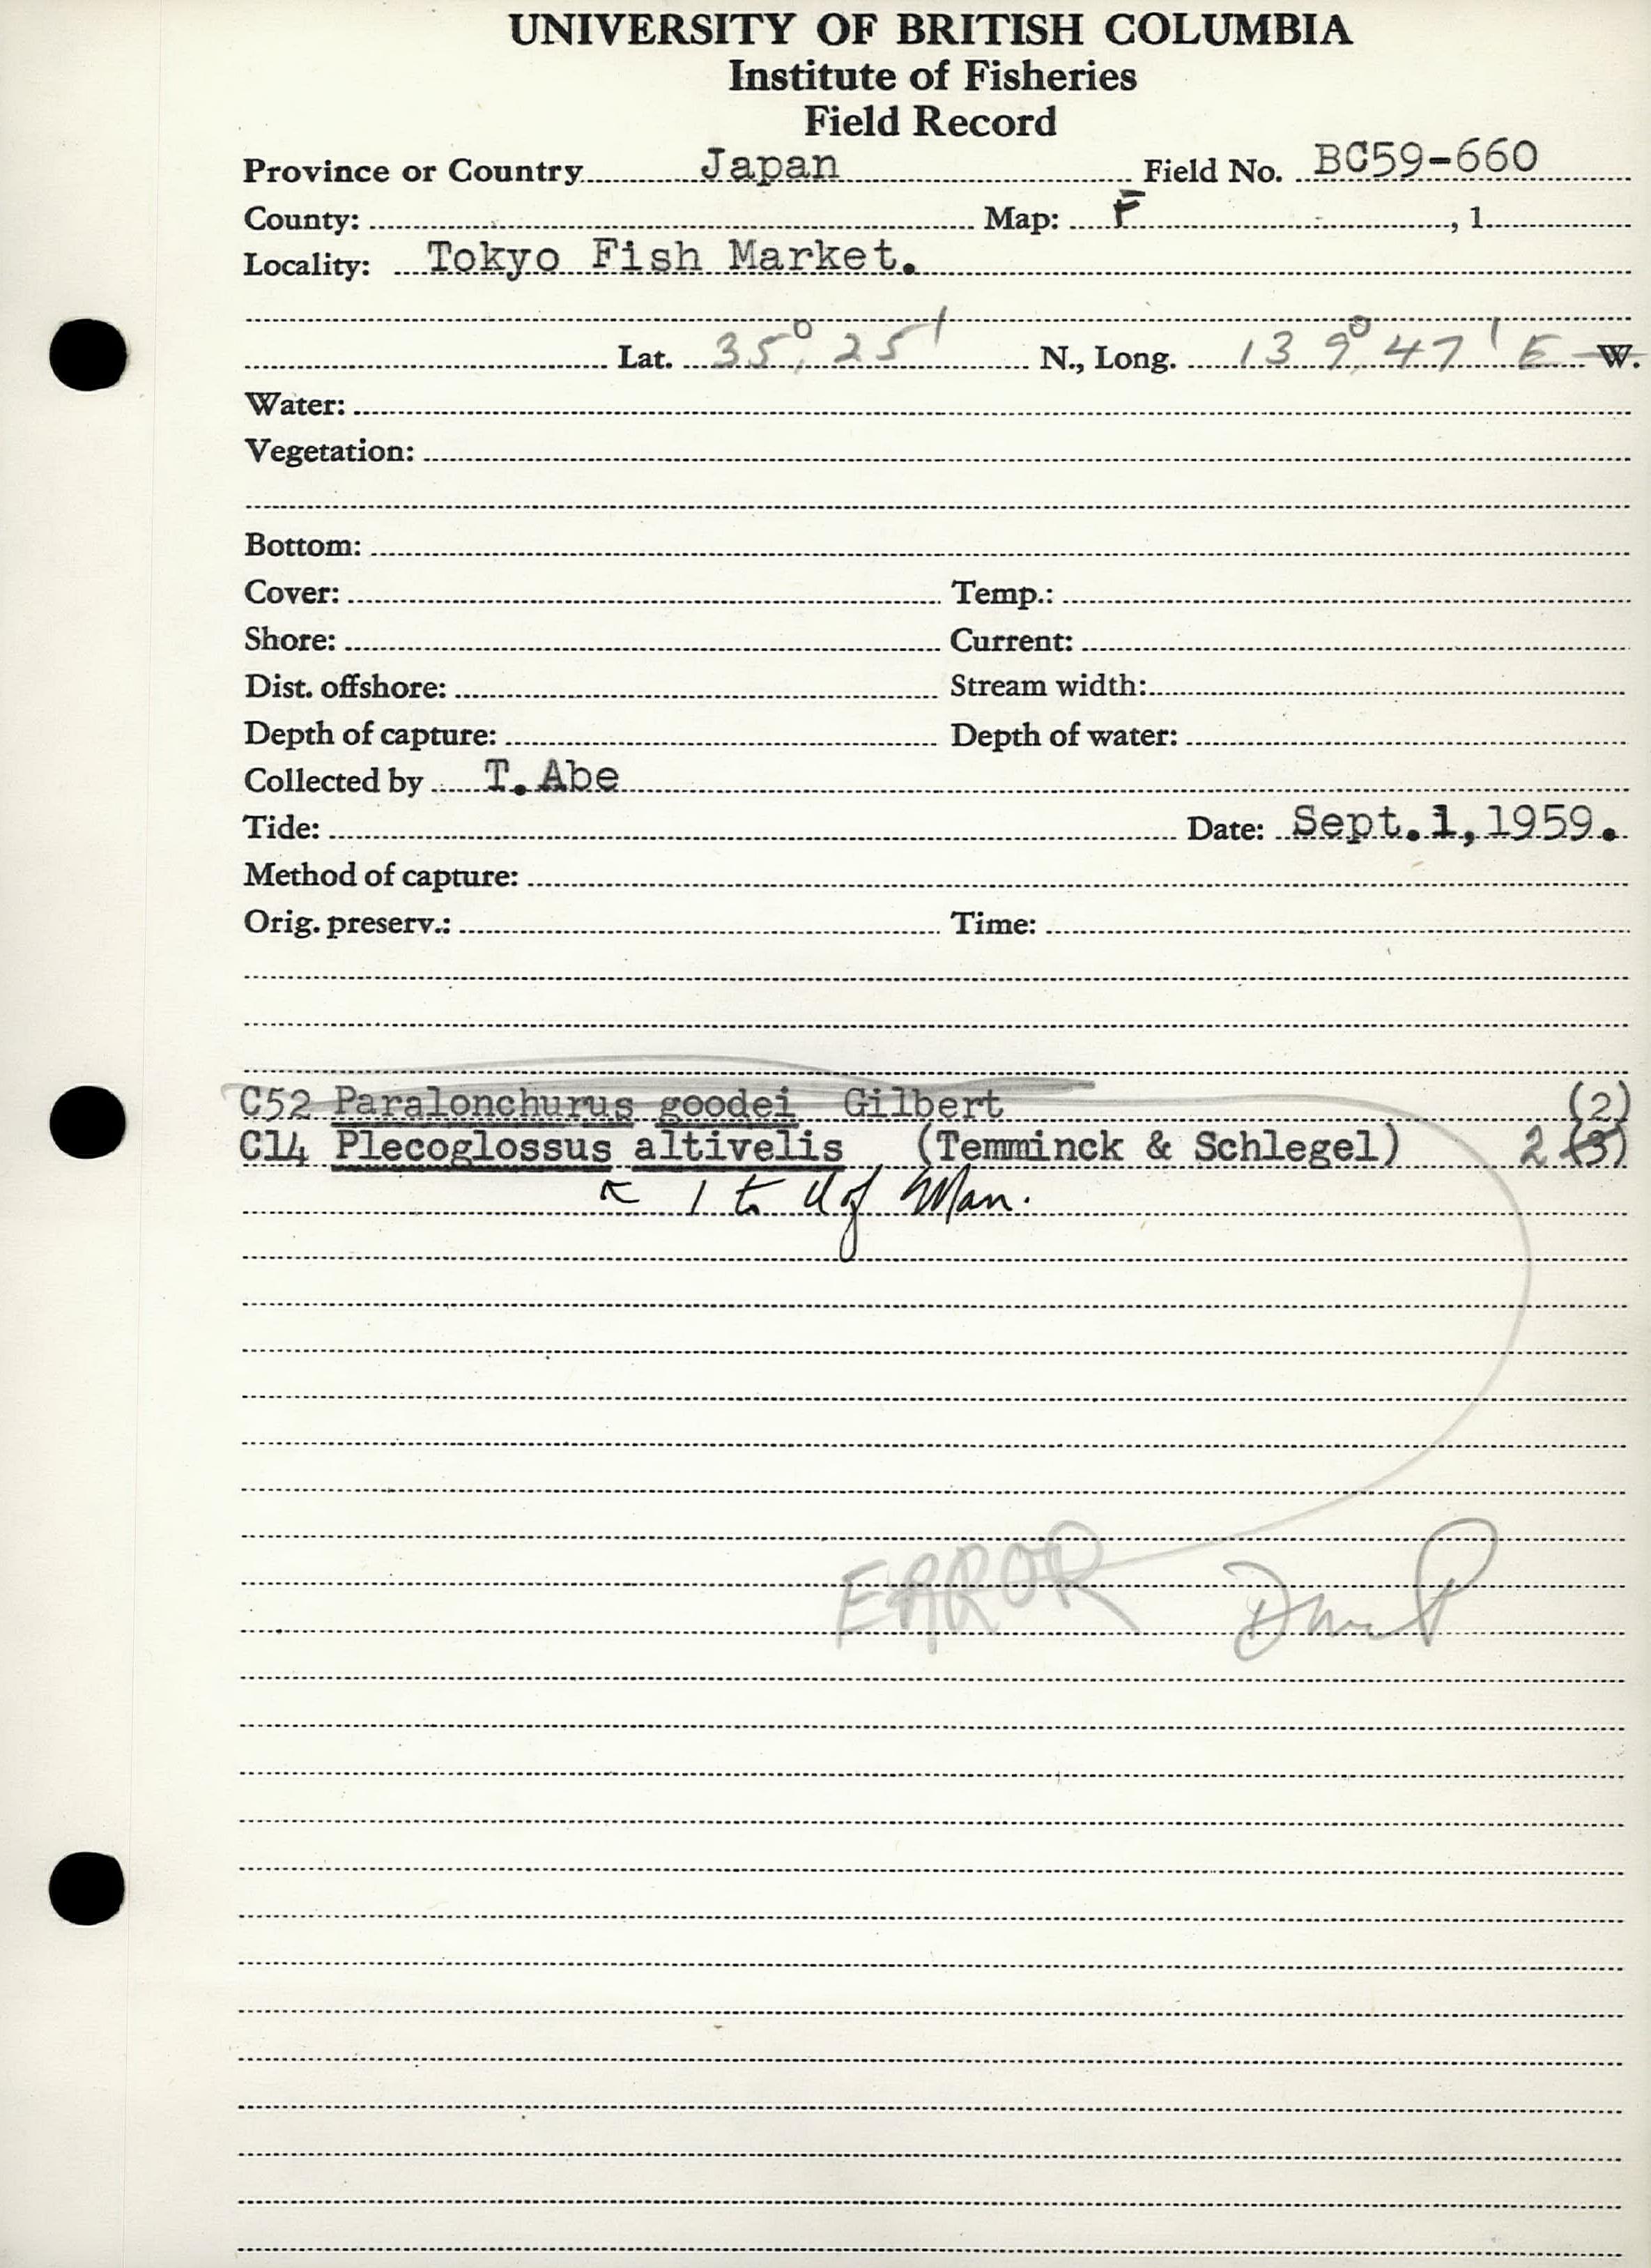 UNIVERSITY OF BRITISH COLUMBIA
Institute of Fisheries
Field Record
Province or Country Japan Field No. BC59-660
County: Map: F , 1
Locality: Tokyo Fish Market.
Lat. 35° 25' N., Long. 139° 47' E W.
Water:
Vegetation:
Bottom:
Cover: Temp.:
Shore: Current:
Dist. offshore: Stream width:
Depth of capture: Depth of water:
Collected by T. Abe
Tide: Date: Sept. 1, 1959.
Method of capture:
Orig. preserv.: Time:
C52 Paralonchurus goodei Gilbert (2)
C14 Plecoglossus altivelis (Temminck & Schlegel) 2 (3)
↖ 1 to U of Man.
ERROR